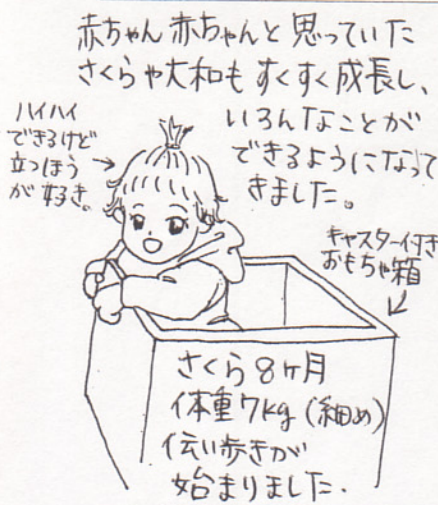 赤ちゃん赤ちゃんと思っていた
さくらや大和もすくすく成長し、
いろんなことが
できるようになって
きました。
ハイハイ
できるけど
立つほう
が好き。
キャスター付き
おもちゃ箱
さくら8ヶ月
体重7kg(細め)
伝い歩きが
始まりました.